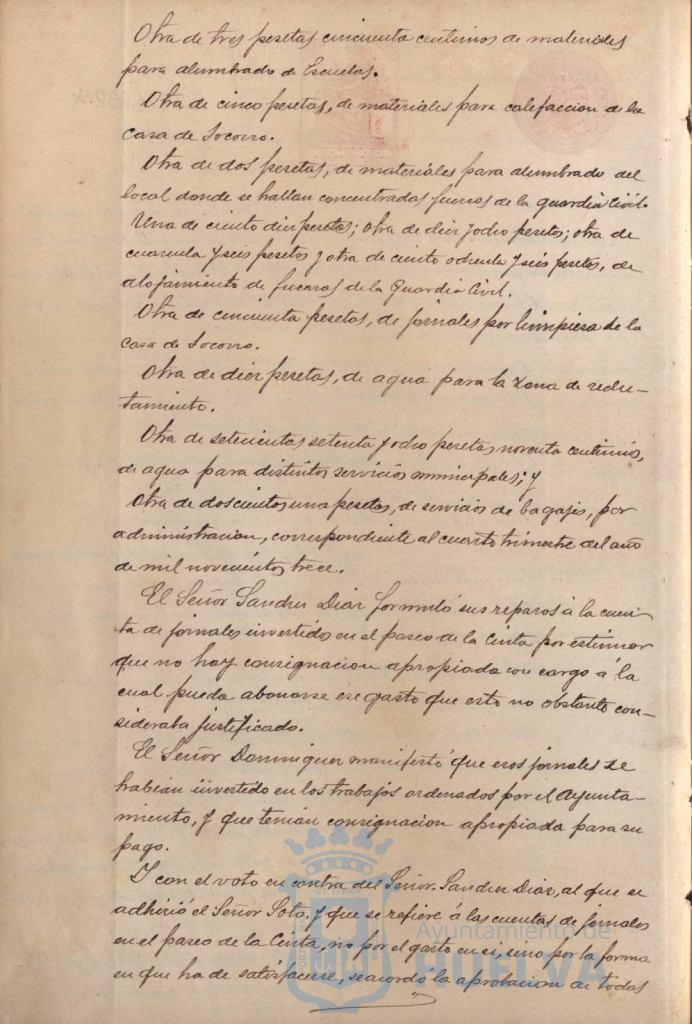 Otra de tres pesetas cincuenta centimos de materiales
para alumbrado de Escuelas.
Otra de cinco pesetas, de materiales para calefaccion de la
Casa de Socorro.
Otra de dos pesetas, de materiales para alumbrado del
local donde se hallan concentradas fuerzas de la guardia Civil.
Una de ciento diez pesetas; otra de diez y ocho pesetas; otra de
cuarenta y seis pesetas y otra de ciento ochenta y seis pesetas, de
alojamiento de fuerzas de la Guardia Civil.
Otra de cincuenta pesetas, de jornales por limpieza de la
Casa de Socorro.
Otra de diez pesetas, de agua para la zona de reclu-
tamiento.
Otra de setecientas setenta y ocho pesetas noventa centimos,
de agua para distintos servicios municipales; y
Otra de doscientos una pesetas, de servicios de bagajes, por
administracion, correspondiente al cuarto trimestre del año
de mil novecientos trece.
El Señor Sanchez Diaz formuló sus reparos á la cuen-
ta de jornales invertidos en el paseo de la Cinta por estimar
que no hay consignacion apropiada con cargo á la
cual pueda abonarse ese gasto que esto no obstante con-
sideraba justificado.
El Señor Dominguez manifestó que esos jornales se
habian invertido en los trabajos ordenados por el Ayunta-
miento, y que tenian consignacion apropiada para su
pago.
Y con el voto en contra del Señor Sanchez Diaz, al que se
adhirió el Señor Soto, y que se refiere á las cuentas de jornales
en el paseo de la Cinta, no por el gasto en si, sino por la forma
en que ha de satisfacerse, se acordó la aprobacion de todas
Ayuntamiento de
HUELVA